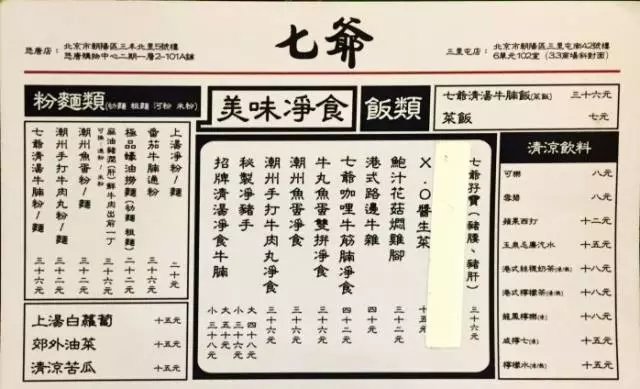 七爺
北京市朝陽區三本北里5號樓
北京市朝陽區三里屯南42號樓
6單元102室(3.3商場斜對面)
三里屯店:
粉麵類(幼麵 粗麵 河粉 米粉)
上湯凈粉/麵 二十元
番茄牛腩通粉 三十六元
極品蠔油撈麵(幼麵 粗麵) 二十二元
麻油豬潤(肝)鮮牛肉出前一丁
可換:通粉/米粉 三十六元
潮州魚蛋粉/麵 三十六元
潮州手打牛肉丸粉/麵 三十六元
七爺清湯牛腩粉/麵 三十六元
上湯白蘿蔔 十五元
郊外油菜 十五元
清涼苦瓜 十五元
美味凈食
七爺孖寶(豬腰、豬肝) 三十六元
X.O醬生菜 十五元
鮑汁花菇燜雞腳 三十二元
港式路邊牛雜 四十元
七爺咖哩牛筋腩凈食 四十六元
牛丸魚蛋雙拼凈食 三十六元
潮州魚蛋凈食 三十六元
潮州手打牛肉丸凈食 三十六元
秘製凈豬手 大 四十八元 小 三十二元
招牌清湯凈食牛腩 大 五十八元 小 三十八元
飯類
七爺清湯牛腩飯(菜飯) 三十六元
菜飯 七元
清涼飲料
可樂 八元
雪碧 八元
蘋果西打 十二元
玉泉忌廉汽水 十五元
港式絲襪奶茶(凍/熱) 十八元
港式檸檬茶(凍/熱) 十八元
龍鳳檸樂(凍) 十八元
咸檸七(凍) 十五元
檸檬水(凍/熱) 十五元